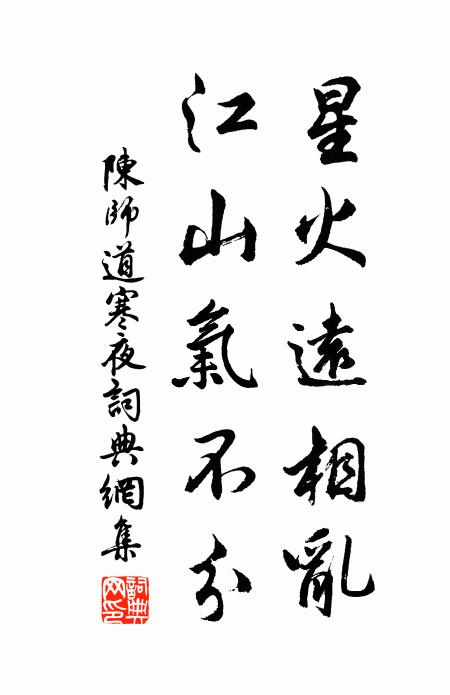 星火遠相亂
江山氣不分
陳師道寒夜詞典網集
詞典網印